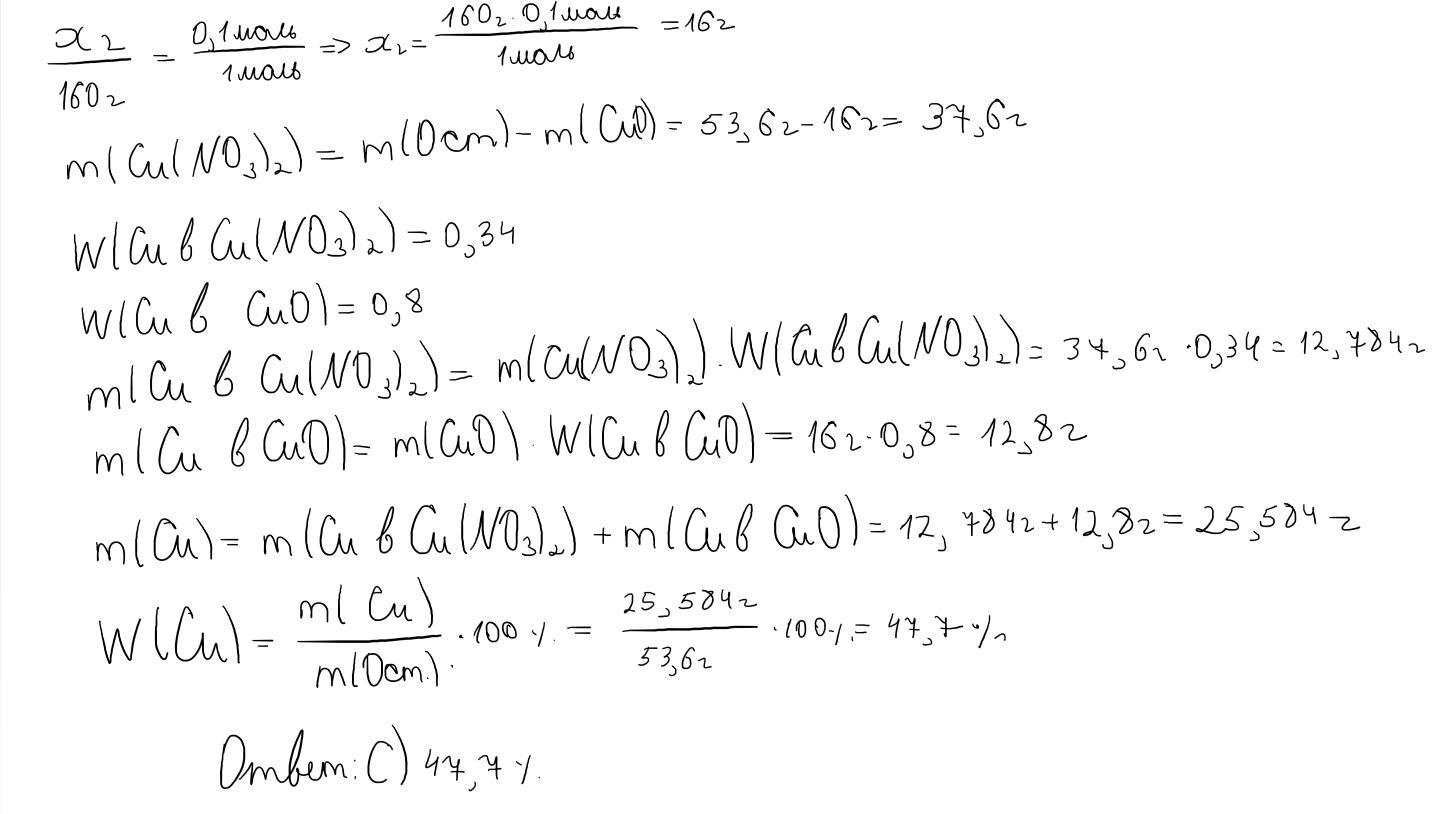 x г / 160 г = 0,1 моль / 1 моль => x г = 160 г · 0,1 моль / 1 моль = 16 г
m(Cu(NO₃)₂) = m(Ост) - m(CuO) = 53,6 г - 16 г = 37,6 г
W(Cu в Cu(NO₃)₂) = 0,34
W(Cu в CuO) = 0,8
m(Cu в Cu(NO₃)₂) = m(Cu(NO₃)₂) · W(Cu в Cu(NO₃)₂) = 37,6 г · 0,34 = 12,784 г
m(Cu в CuO) = m(CuO) · W(Cu в CuO) = 16 г · 0,8 = 12,8 г
m(Cu) = m(Cu в Cu(NO₃)₂) + m(Cu в CuO) = 12,784 г + 12,8 г = 25,584 г
W(Cu) = m(Cu) / m(Ост.) · 100 % = 25,584 г / 53,6 г · 100 % = 47,7 %
Ответ: C) 47,7 %